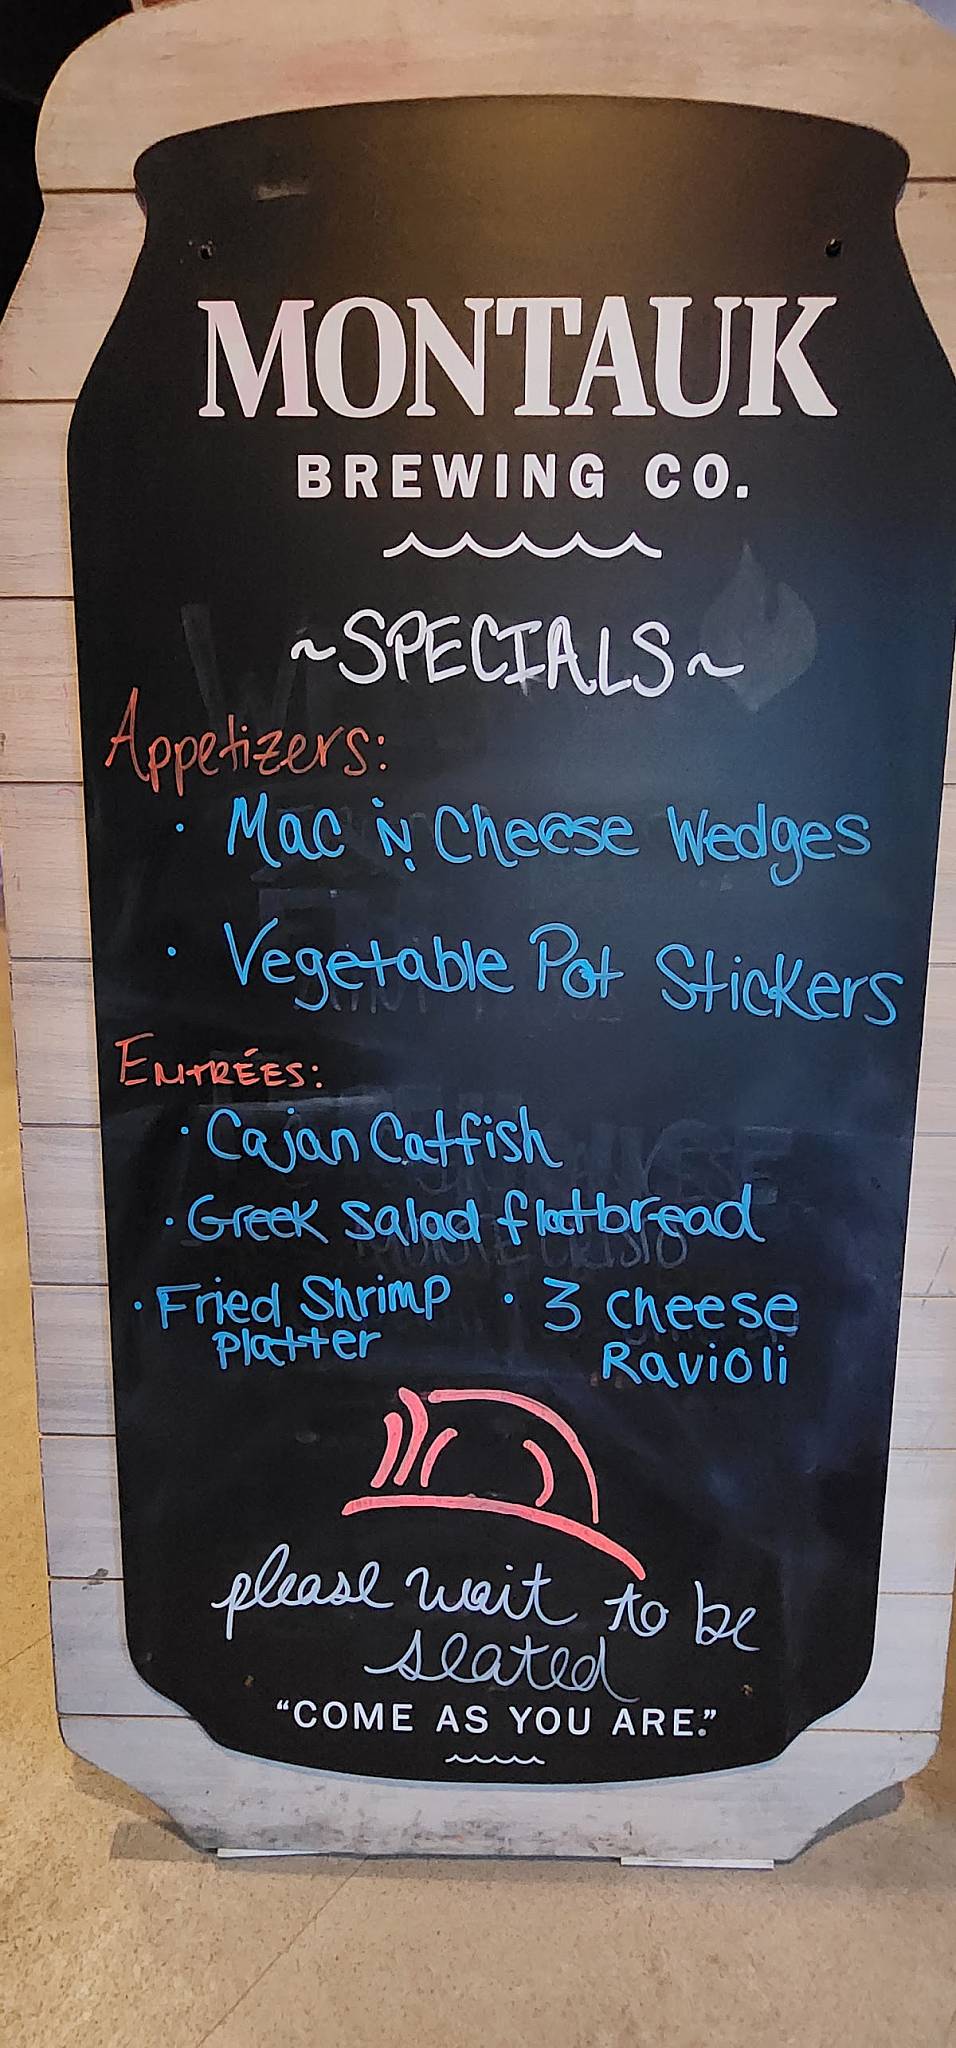 MONTAUK
BREWING CO.
~SPECIALS~
Appetizers:
· Mac 'N' Cheese Wedges
· Vegetable Pot Stickers
ENTRÉES:
· Cajan Catfish
· Greek salad flatbread
· Fried Shrimp Platter
· 3 cheese Ravioli
please wait to be
seated
"COME AS YOU ARE."